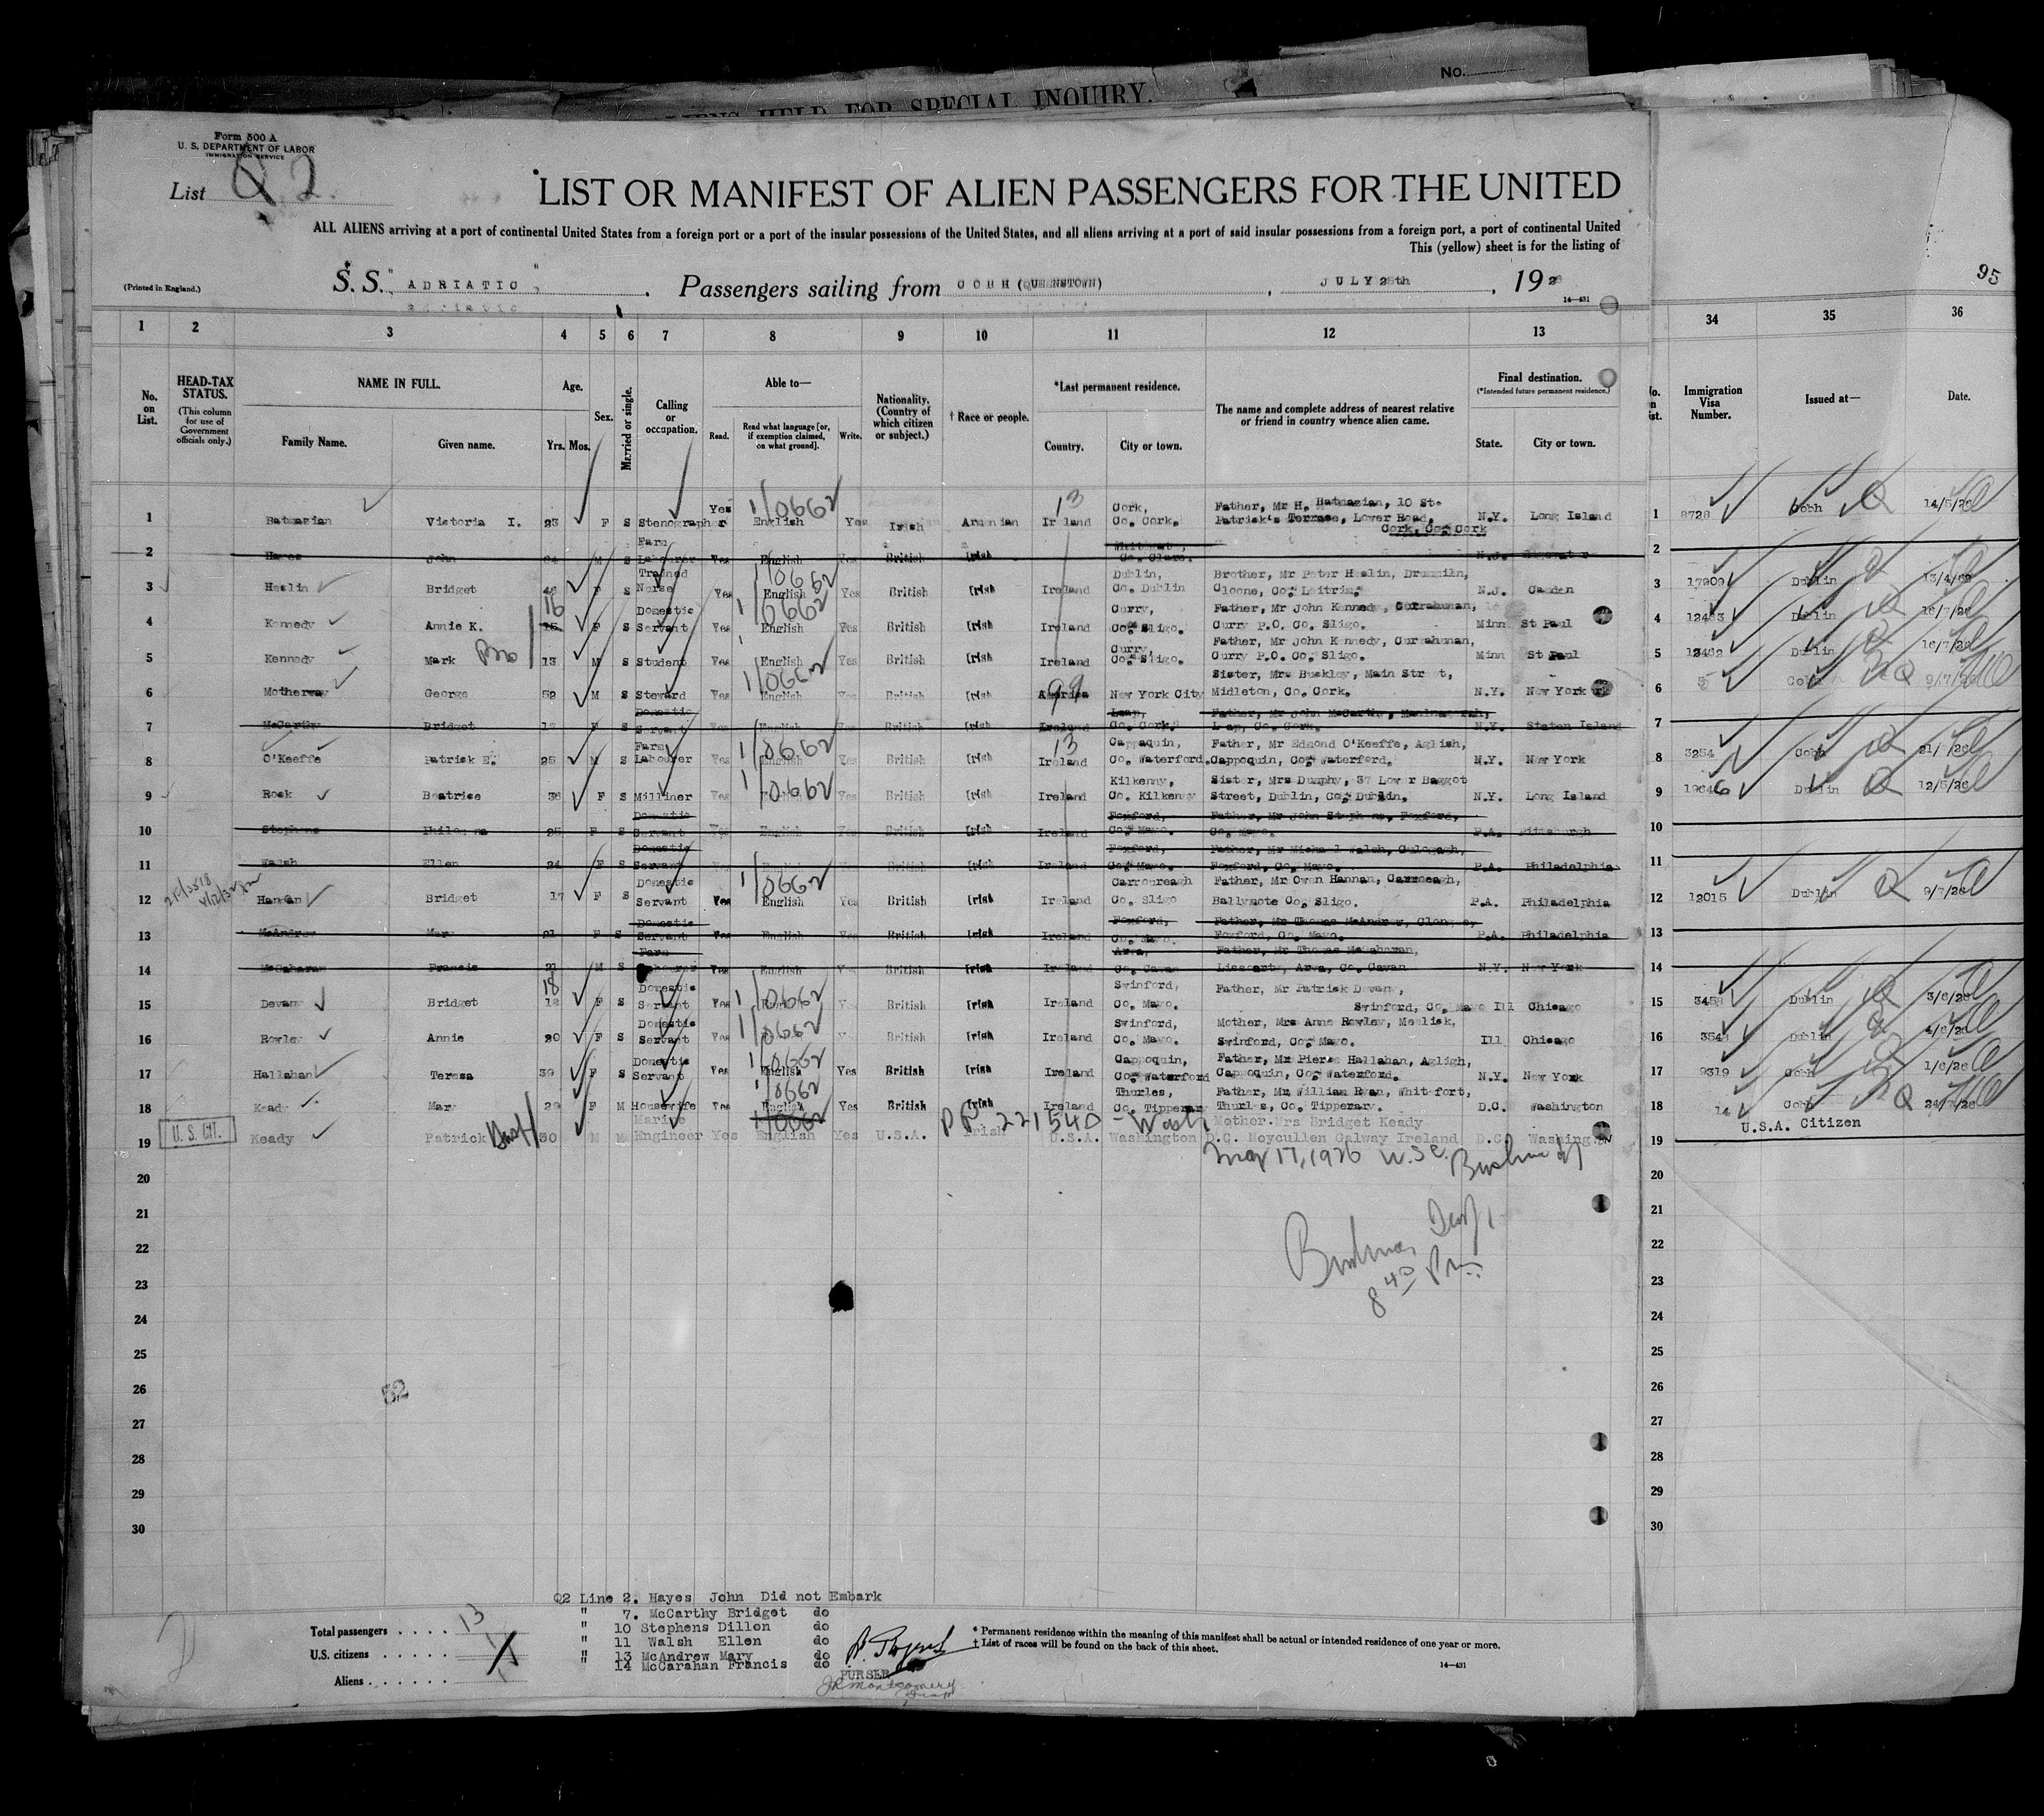 No.
ALIENS HELD FOR SPECIAL INQUIRY.
Form 500 A
U. S. DEPARTMENT OF LABOR
IMMIGRATION SERVICE
List Q 2.
LIST OR MANIFEST OF ALIEN PASSENGERS FOR THE UNITED
ALL ALIENS arriving at a port of continental United States from a foreign port or a port of the insular possessions of the United States, and all aliens arriving at a port of said insular possessions from a foreign port, a port of continental United
This (yellow) sheet is for the listing of
95
(Printed in England.) S. S. "ADRIATIC" . Passengers sailing from COBH (QUEENSTOWN) , JULY 25th , 192
14-431
1 2 3 4 5 6 7 8 9 10 11 12 13 34 35 36
No. on List.
HEAD-TAX STATUS.
(This column for use of Government officials only.)
NAME IN FULL.
Family Name. Given name.
Age.
Yrs. Mos.
Sex.
Married or single.
Calling or occupation.
Able to—
Read.
Read what language [or, if exemption claimed, on what ground].
Write.
Nationality. (Country of which citizen or subject.)
† Race or people.
*Last permanent residence.
Country. City or town.
The name and complete address of nearest relative or friend in country whence alien came.
Final destination.
(*Intended future permanent residence.)
State. City or town.
Immigration Visa Number.
Issued at—
Date.
1 Batmazian Victoria I. 23 F S Stenographer Yes English Yes Irish Armenian Ireland Cork, Co. Cork. Father, Mr H. Batmazian, 10 St. Patrick's Terrase, Lower Road, Cork, Co. Cork N.Y. Long Island 1 8728 Cobh 14/5/26
2 Hayes John M S Farm Labourer Yes English Yes British Irish Co. Clare. N.J. 2
3 Heslin Bridget F S Trained Nurse Yes English Yes British Irish Ireland Dublin, Co. Dublin Brother, Mr Peter Heslin, Drumiln, Cloone, Co. Leitrim. N.J. Camden 3 17909 Dublin
4 Kennedy Annie K. 16 F S Domestic Servant Yes English Yes British Irish Ireland Curry, Co. Sligo. Father, Mr John Kennedy, Currahunan, Curry P.O. Co. Sligo. Minn St Paul 4 Dublin 16/7/26
5 Kennedy Mark Bro 13 M S Student Yes English Yes British Irish Ireland Curry, Co. Sligo. Father, Mr John Kennedy, Currahunan, Curry P.O. Co. Sligo. Minn St Paul 5 Dublin 16/7/26
6 Motherway George 52 M S Steward Yes English Yes British Irish America 99 New York City Sister, Mrs Buckley, Main Street, Midleton, Co. Cork. N.Y. New York 6 5 Cobh 9/7/26
7 McCarthy Bridget F S Domestic Servant Yes English British Irish Ireland Leap, Co. Cork. Father, Mr John McCarthy, Leap, Co. Cork. N.Y. Staten Island 7
8 O'Keeffe Patrick E. 25 M S Farm Labourer Yes English Yes British Irish Ireland 13 Cappaquin, Co. Waterford. Father, Mr Edmond O'Keeffe, Aglish, Cappoquin, Co. Waterford. N.Y. New York 8 3254 Cobh
9 Rock Beatrice 36 F S Milliner Yes Yes British Irish Ireland Kilkenny, Co. Kilkenny Sister, Mrs Dumphy, 37 Lower Baggot Street, Dublin, Co. Dublin. N.Y. Long Island 9 19646 Dublin 12/5/26
10 Stephens Philomena 25 F S Domestic Servant Yes English Yes British Irish Ireland Foxford, Co. Mayo. Father, Mr John Stephens, Foxford, Co. Mayo. P.A. Pittsburgh 10
11 Walsh Ellen 24 F S Domestic Servant English British Irish Ireland Foxford, Co. Mayo. Father, Mr Michael Walsh, Culogagh, Foxford, Co. Mayo. P.A. Philadelphia 11
12 Hannan Bridget 17 F S Domestic Servant Yes English Yes British Irish Ireland Carroureagh Co. Sligo Father, Mr Owen Hannan, Carroeagh, Ballymote Co. Sligo. P.A. Philadelphia 12 12015 Dublin 9/7/26
13 McAndrew Mary 21 F S Domestic Servant Yes English Yes British Irish Ireland Foxford, Co. Mayo. Father, Mr Thomas McAndrew, Foxford, Co. Mayo. P.A. Philadelphia 13
14 McGaharan Francis 21 M S Farm Labourer Yes English Yes British Irish Ireland Arva, Co. Cavan Father, Mr Thomas McGaharan, Arva, Co. Cavan N.Y. New York 14
15 Devany Bridget 18 F S Domestic Servant Yes English Yes British Irish Ireland Swinford, Co. Mayo. Father, Mr Patrick Devany, Swinford, Co. Mayo Ill Chicago 15 3458 Dublin 3/6/26
16 Rowley Annie 20 F S Domestic Servant Yes English Y British Irish Ireland Swinford, Co. Mayo. Mother, Mrs Anne Rowley, Meelick, Swinford, Co. Mayo. Ill Chicago 16 Dublin 4/6/26
17 Hallahan Teresa 39 F S Domestic Servant Yes English Yes British Irish Ireland Cappoquin, Co. Waterford Father, Mr Pierse Hallahan, Agligh, Cappoquin, Co. Waterford. N.Y. New York 17 9319 Cobh 1/6/26
18 Keady Mary 29 F M Housewife Yes English Yes British Irish Ireland Thurles, Co. Tipperary Father, Mr William Ryan, Whitefort, Thurles, Co. Tipperary. D.C. Washington 18 14 Cobh 24/7/26
U. S. CIT.
19 Keady Patrick 30 M M Marine Engineer Yes English Yes U.S.A. Irish U.S.A. Washington D.C. Mother. Mrs Bridget Keady Moycullen Galway Ireland D.C. Washington 19 U.S.A. Citizen
PP 221540 - Wash
May 17, 1926 U.S.C.
20 20
21 21
22 22
23 23
8 40 Pm
24 24
25 25
26 52 26
27 27
28 28
29 29
30 30
Q2 Line 2. Hayes John Did not Embark
" 7. McCarthy Bridget do
" 10 Stephens Dillon do
" 11 Walsh Ellen do
" 13 McAndrew Mary do
" 14 McCarahan Francis do
PURSER
JR Montgomery
Total passengers . . . . 13
U.S. citizens . . . . . 1
Aliens . . . . . .
* Permanent residence within the meaning of this manifest shall be actual or intended residence of one year or more.
† List of races will be found on the back of this sheet.
14-431